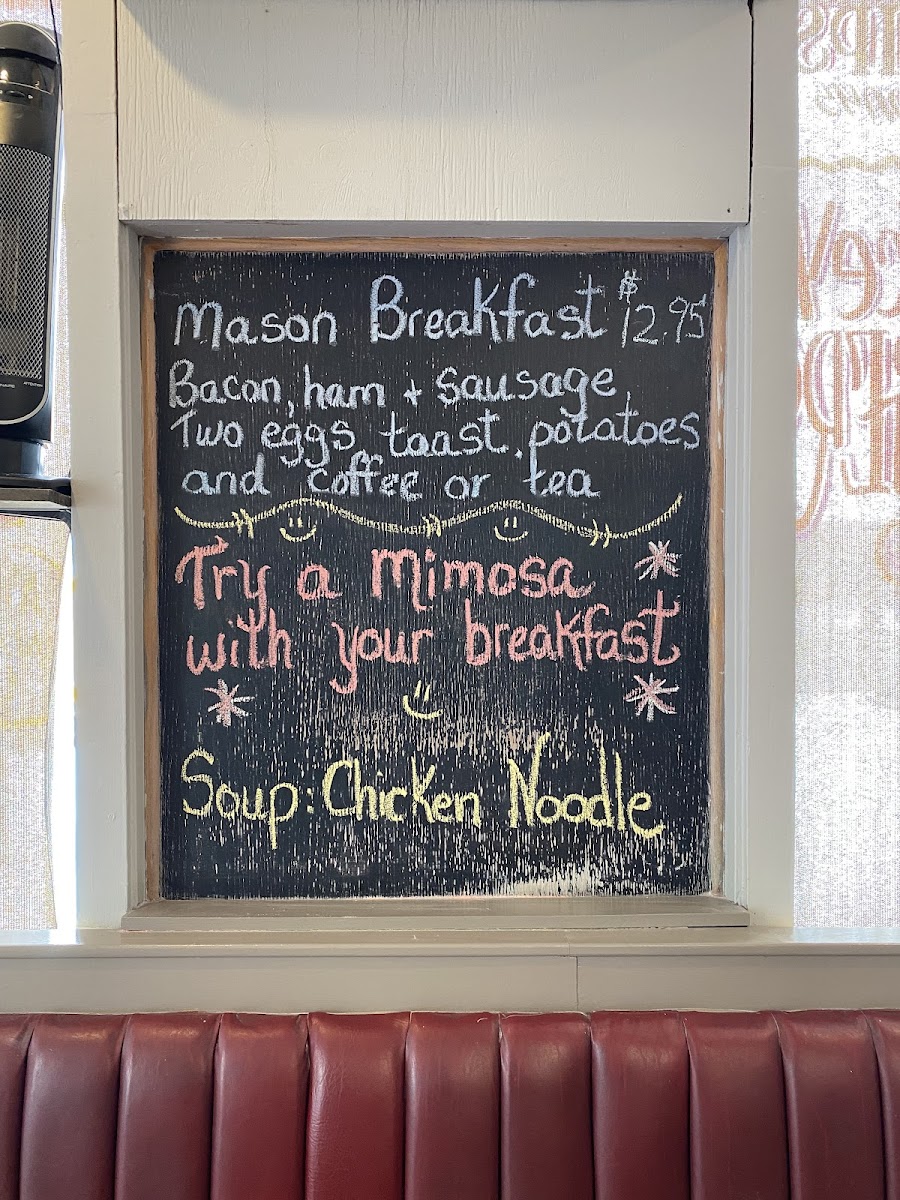 Mason Breakfast $12.95
Bacon, ham + sausage
Two eggs, toast, potatoes
and coffee or tea
Try a mimosa
with your breakfast
Soup: Chicken Noodle